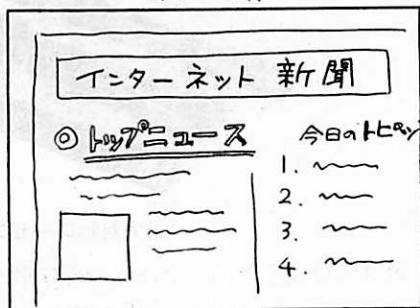 インターネット 新聞
◎ トップニュース
今日のトピック
1.
2.
3.
4.